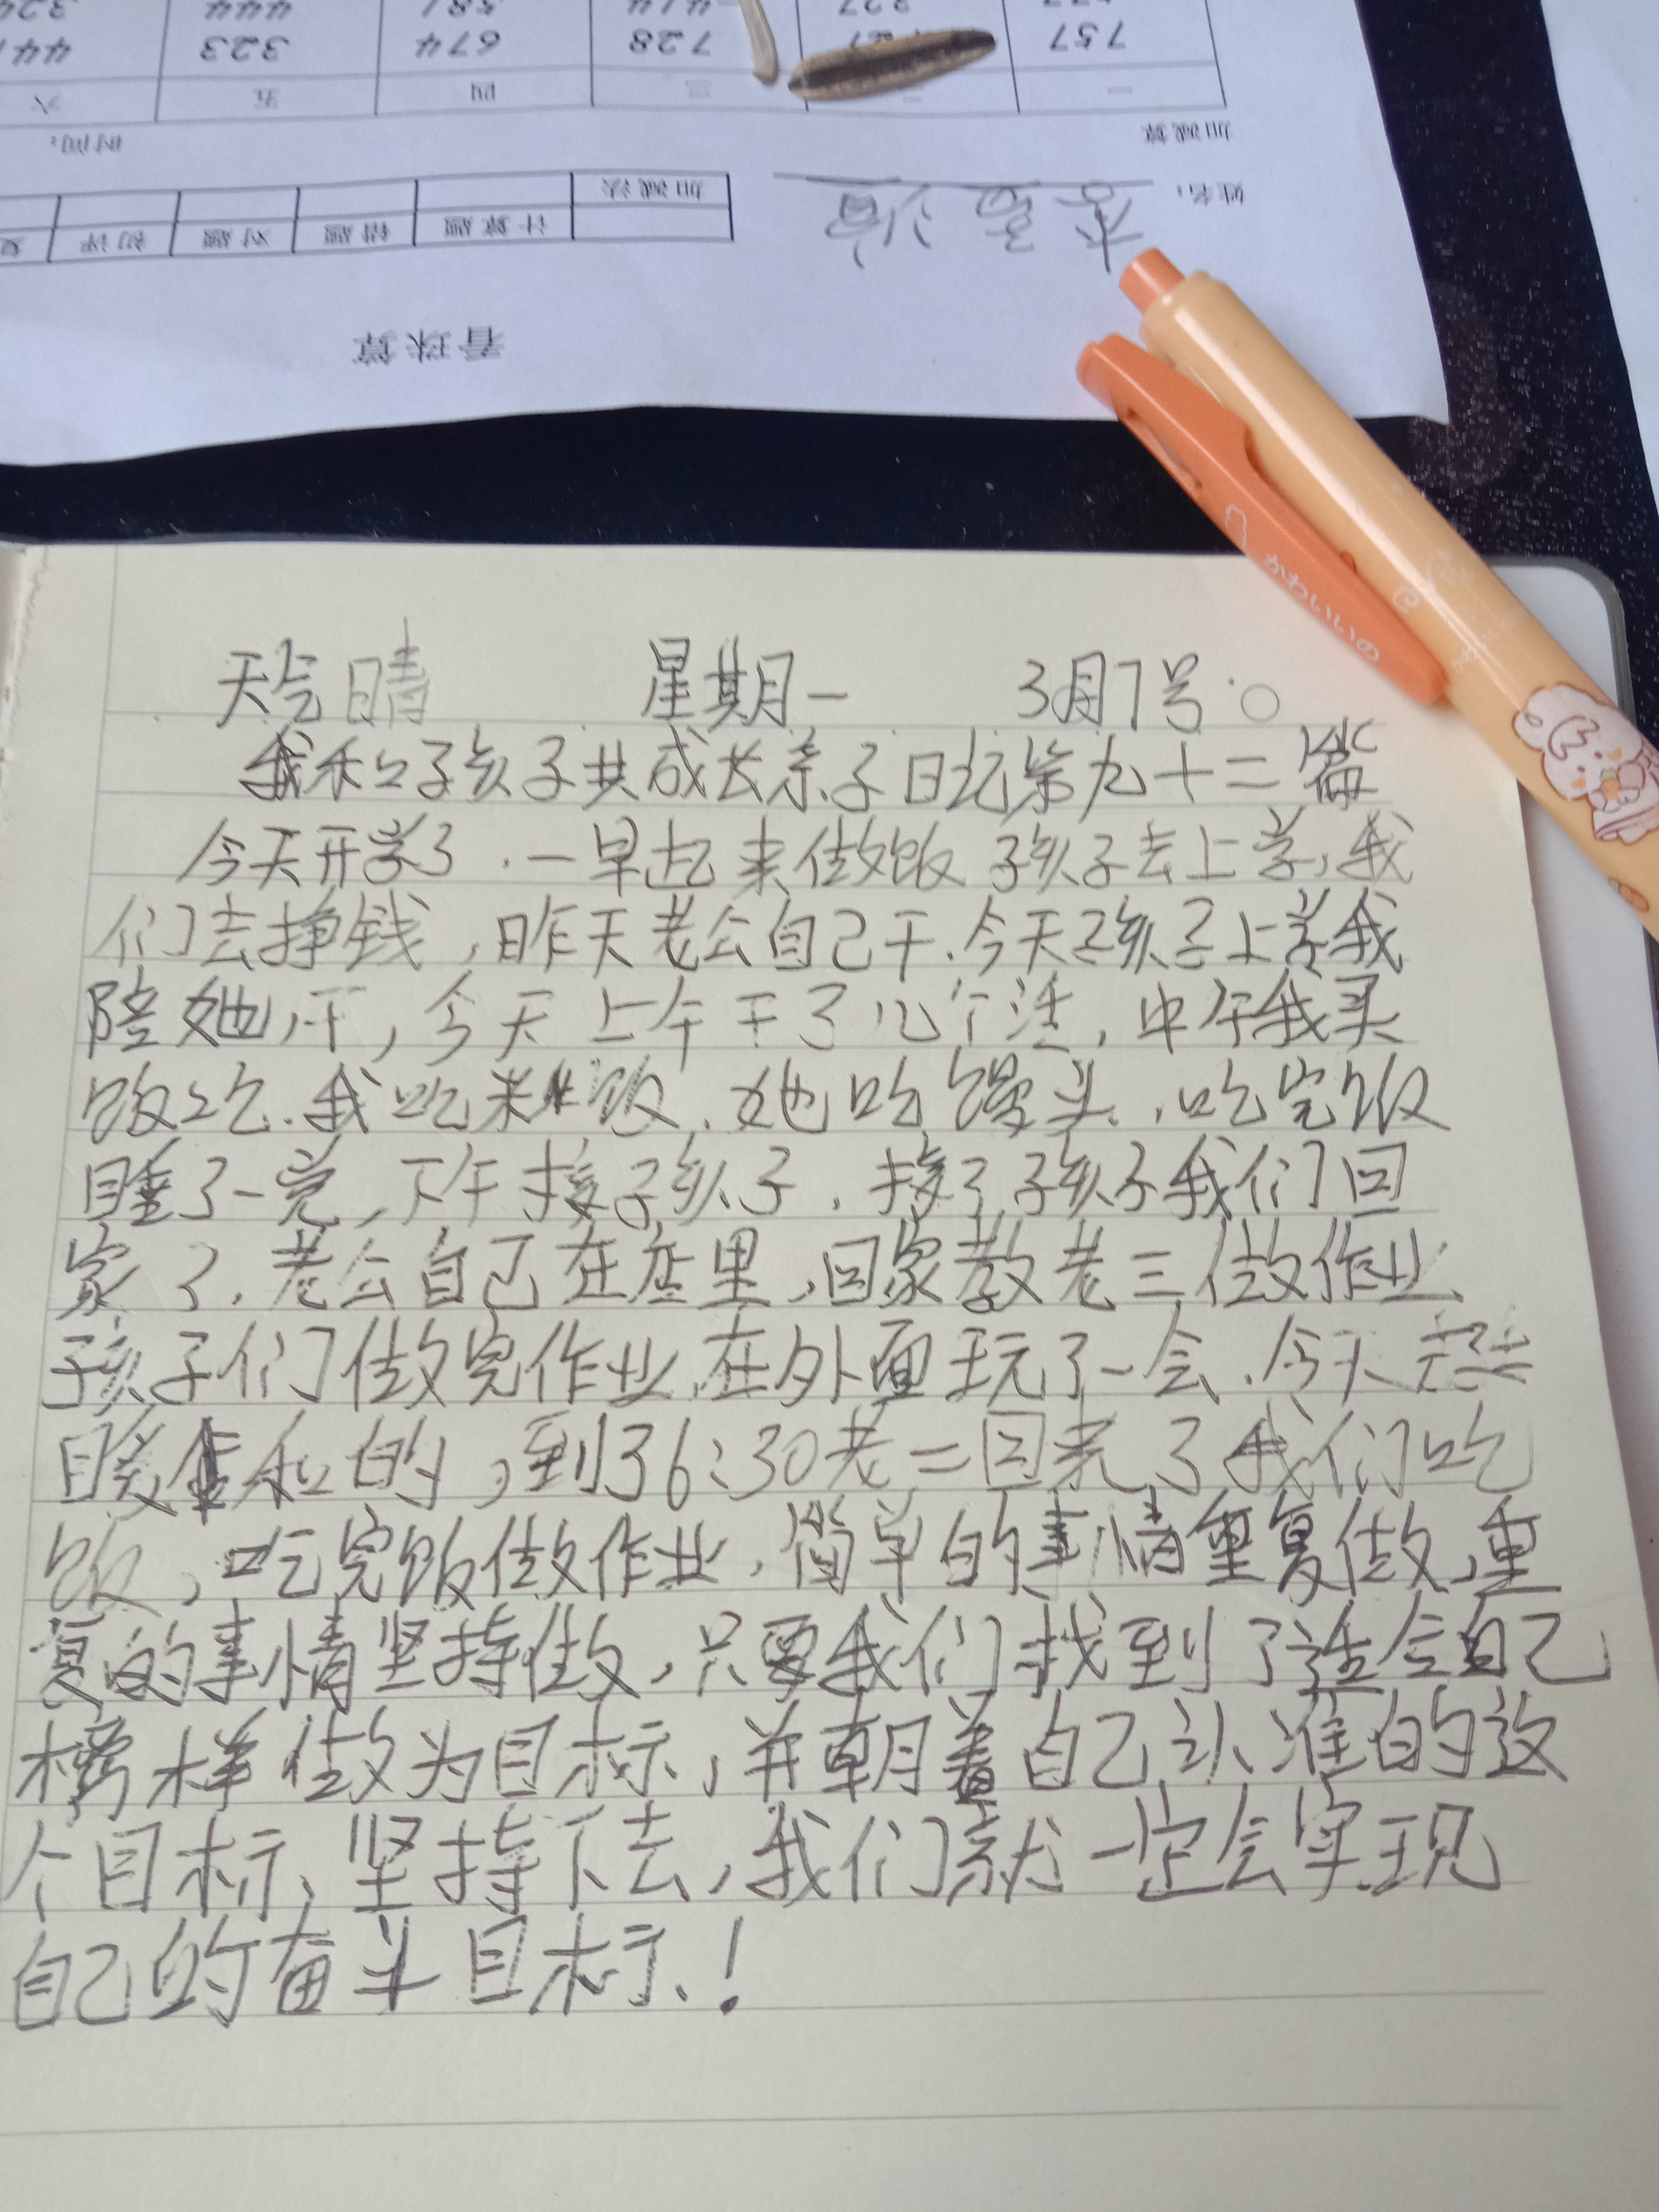 757 728 674 323
一 二 三 四 五 六
加减算 时间:
姓名:
加减法 计算题 错题 对题 初评
看珠算
かわいいの
天气晴 星期一 3月7号。
我和孩子共成长亲子日记第九十二篇
今天开学了.一早起来做饭孩子去上学,我
们去挣钱,昨天老公自己干.今天孩子上学我
陪她干,今天上午干了几个活,中午我买
饭吃.我吃米饭.她吃馒头.,吃完饭
睡了一觉,下午接孩子.接了孩子我们回
家了.老公自己在店里,回家教老三做作业.
孩子们做完作业.在外面玩了一会.今天
暖和的,到36:30老二回来了我们吃
饭,吃完饭做作业.简单的事情重复做,重
复的事情坚持做,只要我们找到了适合自己
榜样做为目标,并朝着自己认准的这
个目标,坚持下去,我们就一定会实现
自己的奋斗目标.!